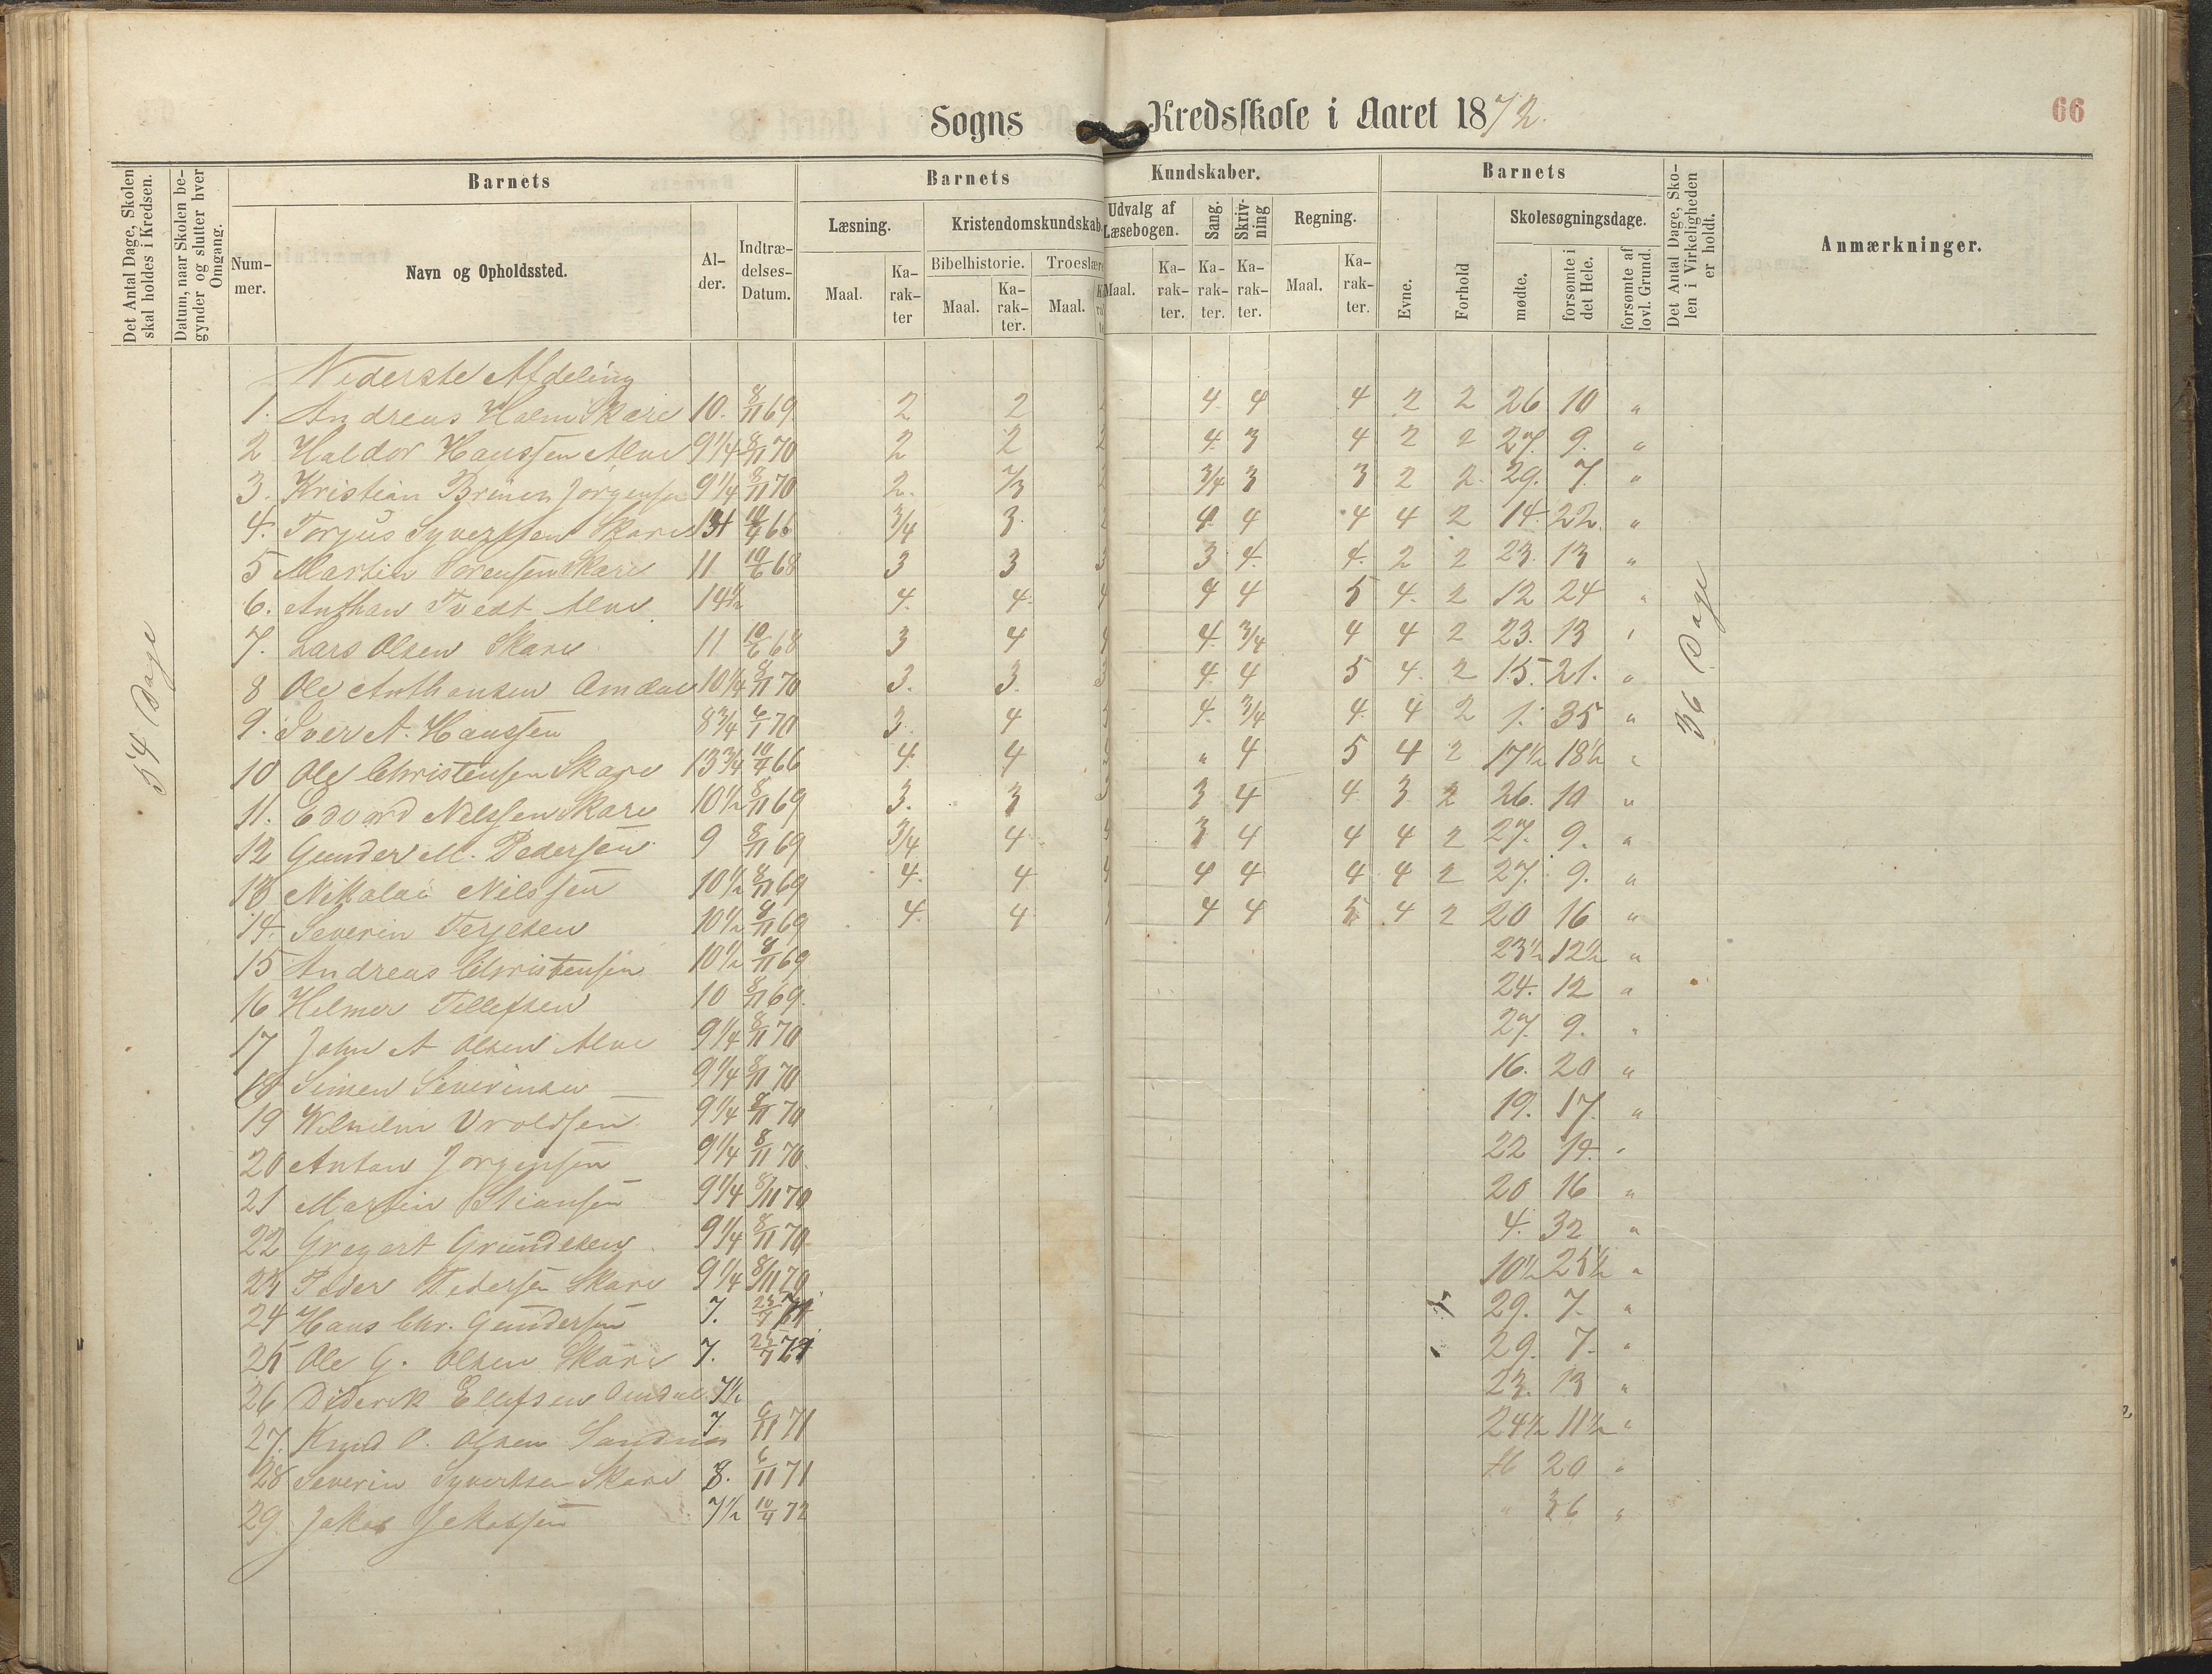 Sogns Kredsskole i Aaret 1872.
66
Det Antal Dage, Skolen skal holdes i Kredsen.
Datum, naar Skolen begynder og slutter hver Omgang.
Barnets
Nummer.
Navn og Opholdssted.
Alder.
Indtrædelses-Datum.
Barnets Kundskaber.
Læsning.
Maal.
Karakter
Kristendomskundskab.
Bibelhistorie.
Maal.
Karakter.
Troeslære
Maal.
Udvalg af Læsebogen.
Maal.
Karakter.
Sang.
Karakter.
Skrivning
Karakter.
Regning.
Maal.
Karakter.
Barnets
Evne.
Forhold
Skolesøgningsdage.
mødte.
forsømte i det Hele.
forsømte af lovl. Grund.
Det Antal Dage, Skolen i Virkeligheden er holdt.
Anmærkninger.
54 Dage
36 Dage
Nederste Afdeling
1. Andreas Holm Skare 10. 8/11 69 2 2 4 4 4 2 2 26 10 "
2 Haldor Hanssen Alve 9 1/4 8/11 70 2 2 2 4 3 4 2 2 27. 9. "
3. Kristian Jørgensen 9 1/4 8/11 70 2. 2/3 2 3/4 3 3 2 2. 29. 7. "
4. Torjus Syvertsen Skare 66 3/4 3. 4 4 4 4 2 14. 22. "
5 Martin Sørensen Skare 11 10/6 68 3 3 3 3 4. 4. 2 2 23. 13 "
6. Anthan Tvedt Alve 14 1/2 4. 4. 4 4 4 5 4. 2 12 24 "
7. Lars Olsen Skare 11 10/6 68 3 4 4 4. 3/4 4 4 2 23. 13 "
8 Ole Anthonsen Omdal 10 1/4 8/11 70 3. 3. 3 4 4 5 4. 2 15. 21. "
9. Iver A. Hanssen 8 3/4 6/1 70 3. 4 4. 3/4 4. 4 2 1. 35 "
10 Ole Christensen Skare 13 3/4 10/4 66 4. 4 " 4 5 4 2 17 1/2 18 1/2 "
11. Edvard Nelssen Skare 10 1/2 8/11 69 3. 3 3 3 4 4 3 2 26. 10 "
12 Gunder M. Pedersen 9 8/11 69 3/4 4 3 4 4 4 2 27. 9. "
13 Nikolai Nilssen 10 1/2 8/11 69 4. 4 4 4 4 4 2 27. 9. "
14. Severin Terjesen 10 1/2 8/11 69 4. 4 4 4 5 4 2 20 16 "
15 Andreas Christensen 10 1/2 8/11 69 23 1/2 12 1/2 "
16 Helmer Tellefsen 10 8/11 69. 24. 12 "
17 John A Olsen Alve 9 1/4 8/11 70 27. 9. "
18 Simen Severinsen 9 1/4 8/11 70 16. 20 "
19 Wilhelm Uroldsen 9 1/4 8/11 70 19. 17. "
20 Anton Jørgensen 9 1/4 8/11 70. 22 14. "
21 Martin Stiansen 9 1/4 8/11 70 20 16 "
22 Gregert Grundesen 9 1/4 8/11 70 4. 32 "
23 Peder Pedersen Skare 9 1/4 8/11 70 10 1/2 25 1/2 "
24 Hans Chr. Gundersen 7. 29. 7. "
25 Ole G. Olsen Skare 7. 29. 7. "
26 Diderik Ellefsen Omdal 7 1/2 23. 13 "
27. Knud O. Olsen Sandnes 7 6/11 71 24 1/2 11 1/2 "
28 Severin Syvertsen Skare 8. 6/11 71 16 20 "
29 Jakob Jakobsen 7 1/2 10/4 72 " 36 "